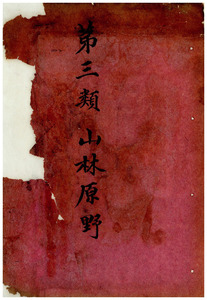 第三類 山林原野